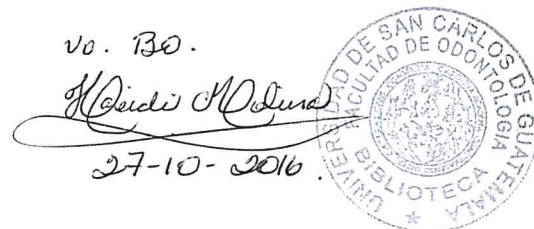 Vo. Bo.
Heidi Molina
27-10-2016.
UNIVERSIDAD DE SAN CARLOS DE GUATEMALA
FACULTAD DE ODONTOLOGIA
BIBLIOTECA